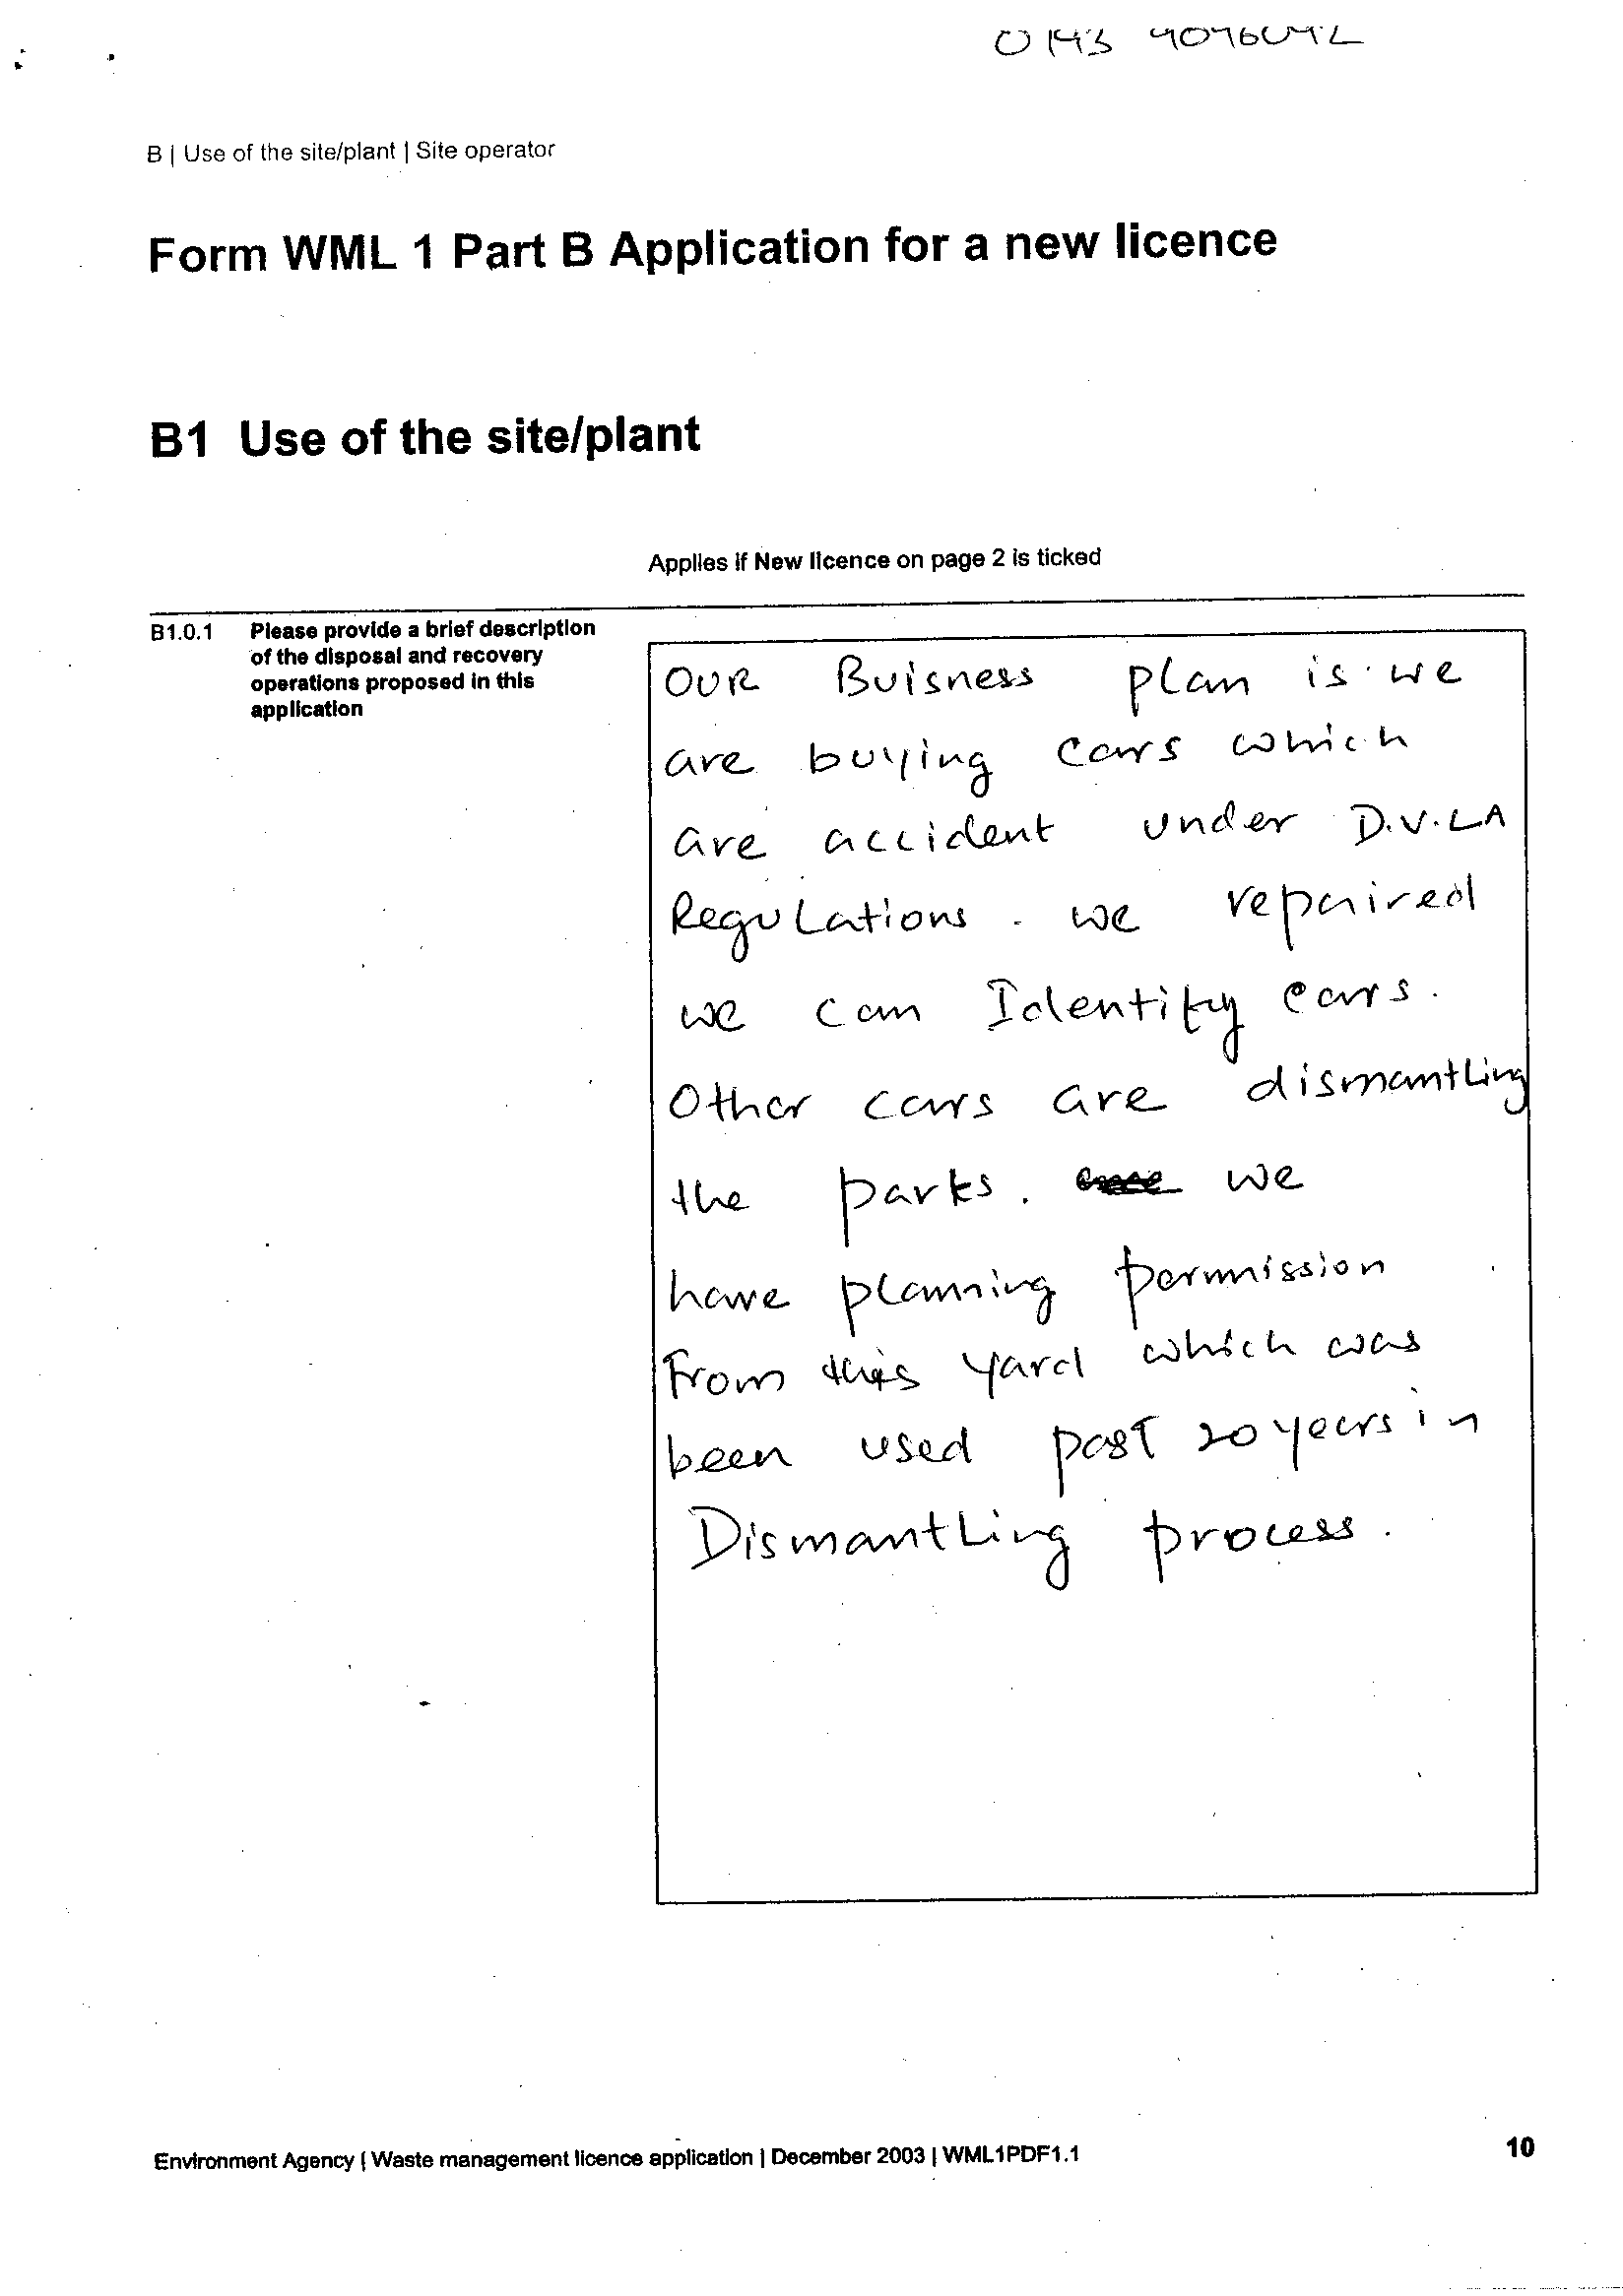 B | Use of the site/plant | Site operator
Form WML 1 Part B Application for a new licence
B1 Use of the site/plant
Applies if New licence on page 2 is ticked
B1.0.1 Please provide a brief description
of the disposal and recovery
operations proposed in this
application
OUR Buisness plan is we
are buying cars which
are accident under D.V.LA
Regulations. we repaired
we can Identify cars.
Other cars are dismantling
the parks. we
have planning permission
From this yard which was
been used past 20 years in
Dismantling process.
Environment Agency | Waste management licence application | December 2003 | WML1PDF1.1
10